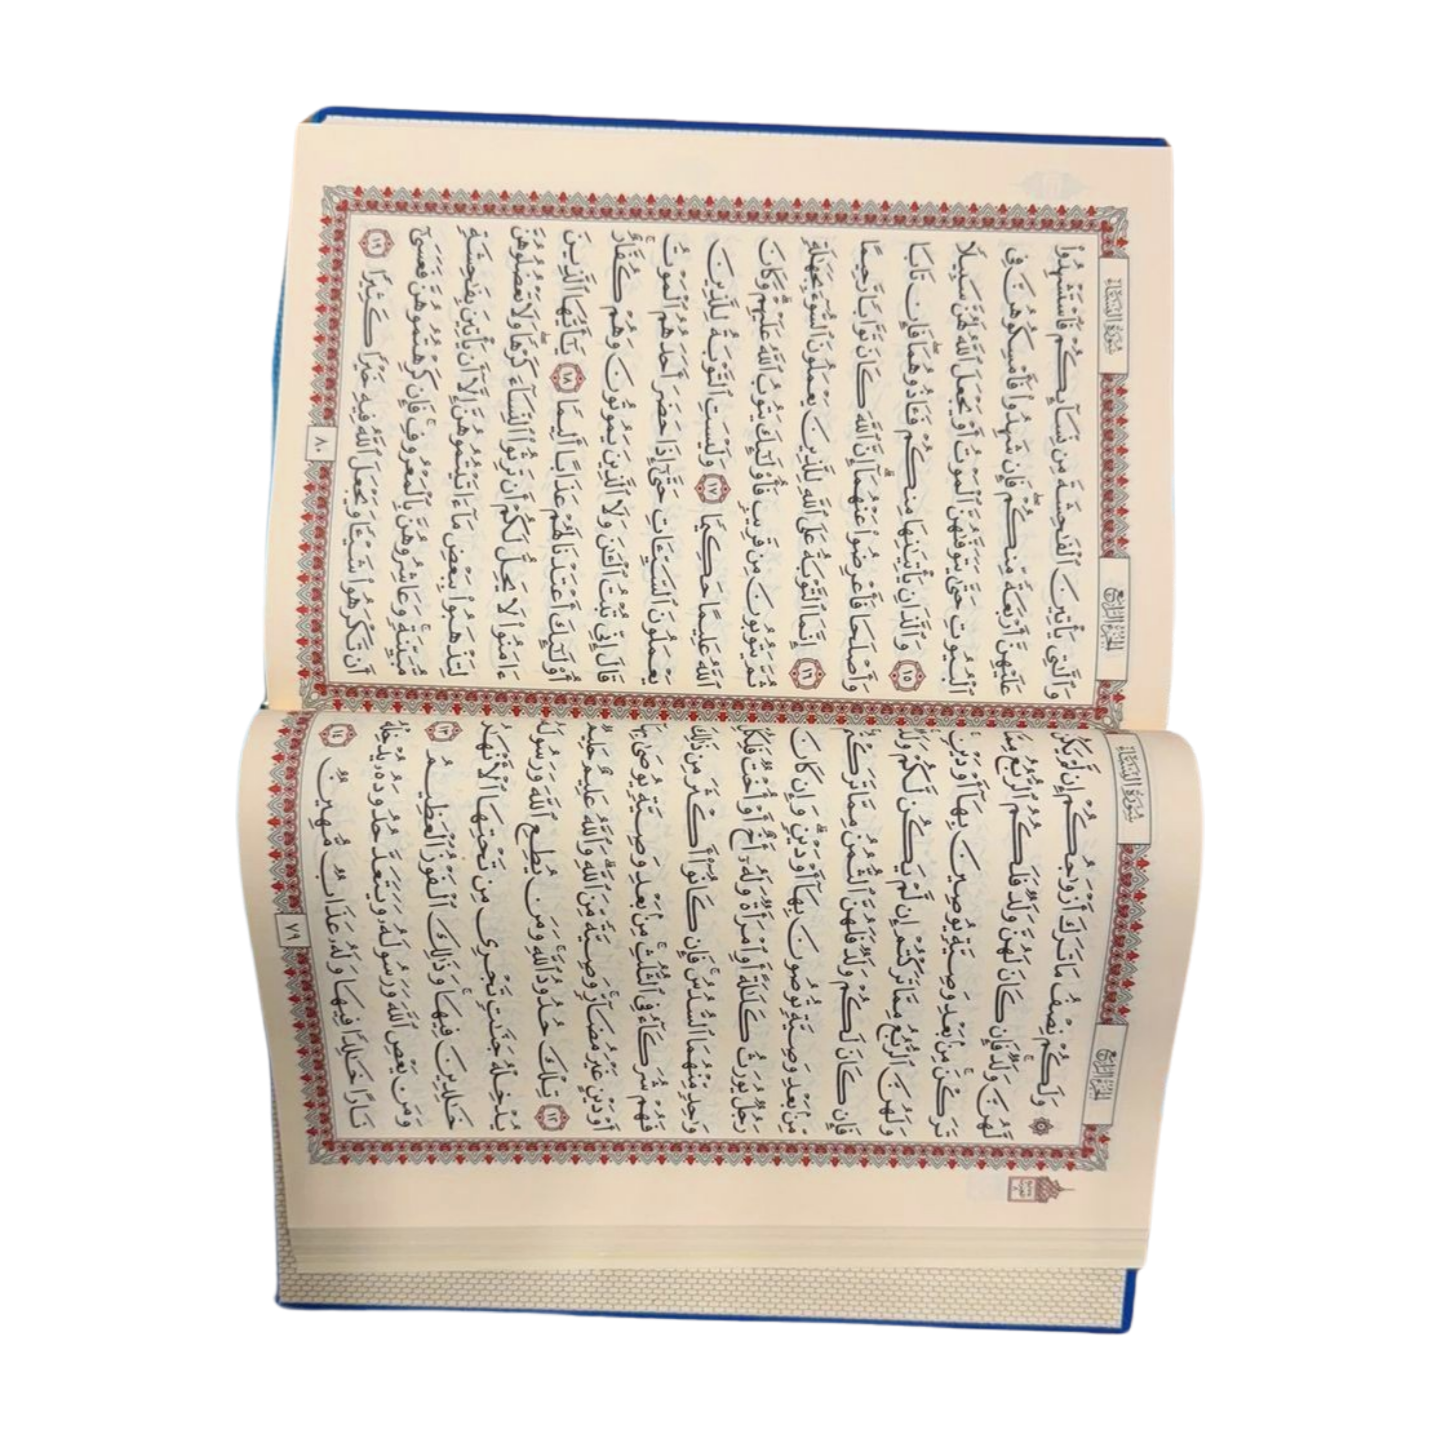 الجزء الرابع
سورة النساء
۞ وَلَكُمْ نِصْفُ مَا تَرَكَ أَزْوَٰجُكُمْ إِن لَّمْ يَكُن
لَّهُنَّ وَلَدٌ ۚ فَإِن كَانَ لَهُنَّ وَلَدٌ فَلَكُمُ ٱلرُّبُعُ مِمَّا
تَرَكْنَ ۚ مِنۢ بَعْدِ وَصِيَّةٍ يُوصِينَ بِهَآ أَوْ دَيْنٍ ۚ
وَلَهُنَّ ٱلرُّبُعُ مِمَّا تَرَكْتُمْ إِن لَّمْ يَكُن لَّكُمْ وَلَدٌ ۚ
فَإِن كَانَ لَكُمْ وَلَدٌ فَلَهُنَّ ٱلثُّمُنُ مِمَّا تَرَكْتُم ۚ
مِّنۢ بَعْدِ وَصِيَّةٍ تُوصُونَ بِهَآ أَوْ دَيْنٍ ۗ وَإِن كَانَ
رَجُلٌ يُورَثُ كَلَٰلَةً أَوِ ٱمْرَأَةٌ وَلَهُۥٓ أَخٌ أَوْ أُخْتٌ فَلِكُلِّ
وَٰحِدٍ مِّنْهُمَا ٱلسُّدُسُ ۚ فَإِن كَانُوٓا۟ أَكْثَرَ مِن ذَٰلِكَ
فَهُمْ شُرَكَآءُ فِى ٱلثُّلُثِ ۚ مِنۢ بَعْدِ وَصِيَّةٍ يُوصَىٰ بِهَآ
أَوْ دَيْنٍ غَيْرَ مُضَآرٍّ ۚ وَصِيَّةً مِّنَ ٱللَّهِ ۗ وَٱللَّهُ عَلِيمٌ حَلِيمٌ
١٢ تِلْكَ حُدُودُ ٱللَّهِ ۚ وَمَن يُطِعِ ٱللَّهَ وَرَسُولَهُۥ
يُدْخِلْهُ جَنَّٰتٍ تَجْرِى مِن تَحْتِهَا ٱلْأَنْهَٰرُ
خَٰلِدِينَ فِيهَا ۚ وَذَٰلِكَ ٱلْفَوْزُ ٱلْعَظِيمُ ١٣
وَمَن يَعْصِ ٱللَّهَ وَرَسُولَهُۥ وَيَتَعَدَّ حُدُودَهُۥ يُدْخِلْهُ
نَارًا خَٰلِدًا فِيهَا وَلَهُۥ عَذَابٌ مُّهِينٌ ١٤
٧٩
الجزء الرابع
سورة النساء
وَٱلَّٰتِى يَأْتِينَ ٱلْفَٰحِشَةَ مِن نِّسَآئِكُمْ فَٱسْتَشْهِدُوا۟
عَلَيْهِنَّ أَرْبَعَةً مِّنكُمْ ۖ فَإِن شَهِدُوا۟ فَأَمْسِكُوهُنَّ فِى
ٱلْبُيُوتِ حَتَّىٰ يَتَوَفَّىٰهُنَّ ٱلْمَوْتُ أَوْ يَجْعَلَ ٱللَّهُ لَهُنَّ سَبِيلًا
١٥ وَٱلَّذَانِ يَأْتِيَٰنِهَا مِنكُمْ فَـَٔاذُوهُمَا ۖ فَإِن تَابَا
وَأَصْلَحَا فَأَعْرِضُوا۟ عَنْهُمَآ ۗ إِنَّ ٱللَّهَ كَانَ تَوَّابًا رَّحِيمًا
١٦ إِنَّمَا ٱلتَّوْبَةُ عَلَى ٱللَّهِ لِلَّذِينَ يَعْمَلُونَ ٱلسُّوٓءَ بِجَهَٰلَةٍ
ثُمَّ يَتُوبُونَ مِن قَرِيبٍ فَأُو۟لَٰٓئِكَ يَتُوبُ ٱللَّهُ عَلَيْهِمْ ۗ وَكَانَ
ٱللَّهُ عَلِيمًا حَكِيمًا ١٧ وَلَيْسَتِ ٱلتَّوْبَةُ لِلَّذِينَ
يَعْمَلُونَ ٱلسَّيِّـَٔاتِ حَتَّىٰٓ إِذَا حَضَرَ أَحَدَهُمُ ٱلْمَوْتُ
قَالَ إِنِّى تُبْتُ ٱلْـَٰٔنَ وَلَا ٱلَّذِينَ يَمُوتُونَ وَهُمْ كُفَّارٌ ۚ
أُو۟لَٰٓئِكَ أَعْتَدْنَا لَهُمْ عَذَابًا أَلِيمًا ١٨ يَٰٓأَيُّهَا ٱلَّذِينَ
ءَامَنُوا۟ لَا يَحِلُّ لَكُمْ أَن تَرِثُوا۟ ٱلنِّسَآءَ كَرْهًا ۖ وَلَا تَعْضُلُوهُنَّ
لِتَذْهَبُوا۟ بِبَعْضِ مَآ ءَاتَيْتُمُوهُنَّ إِلَّآ أَن يَأْتِينَ بِفَٰحِشَةٍ
مُّبَيِّنَةٍ ۚ وَعَاشِرُوهُنَّ بِٱلْمَعْرُوفِ ۚ فَإِن كَرِهْتُمُوهُنَّ فَعَسَىٰٓ
أَن تَكْرَهُوا۟ شَيْـًٔا وَيَجْعَلَ ٱللَّهُ فِيهِ خَيْرًا كَثِيرًا ١٩
٨٠